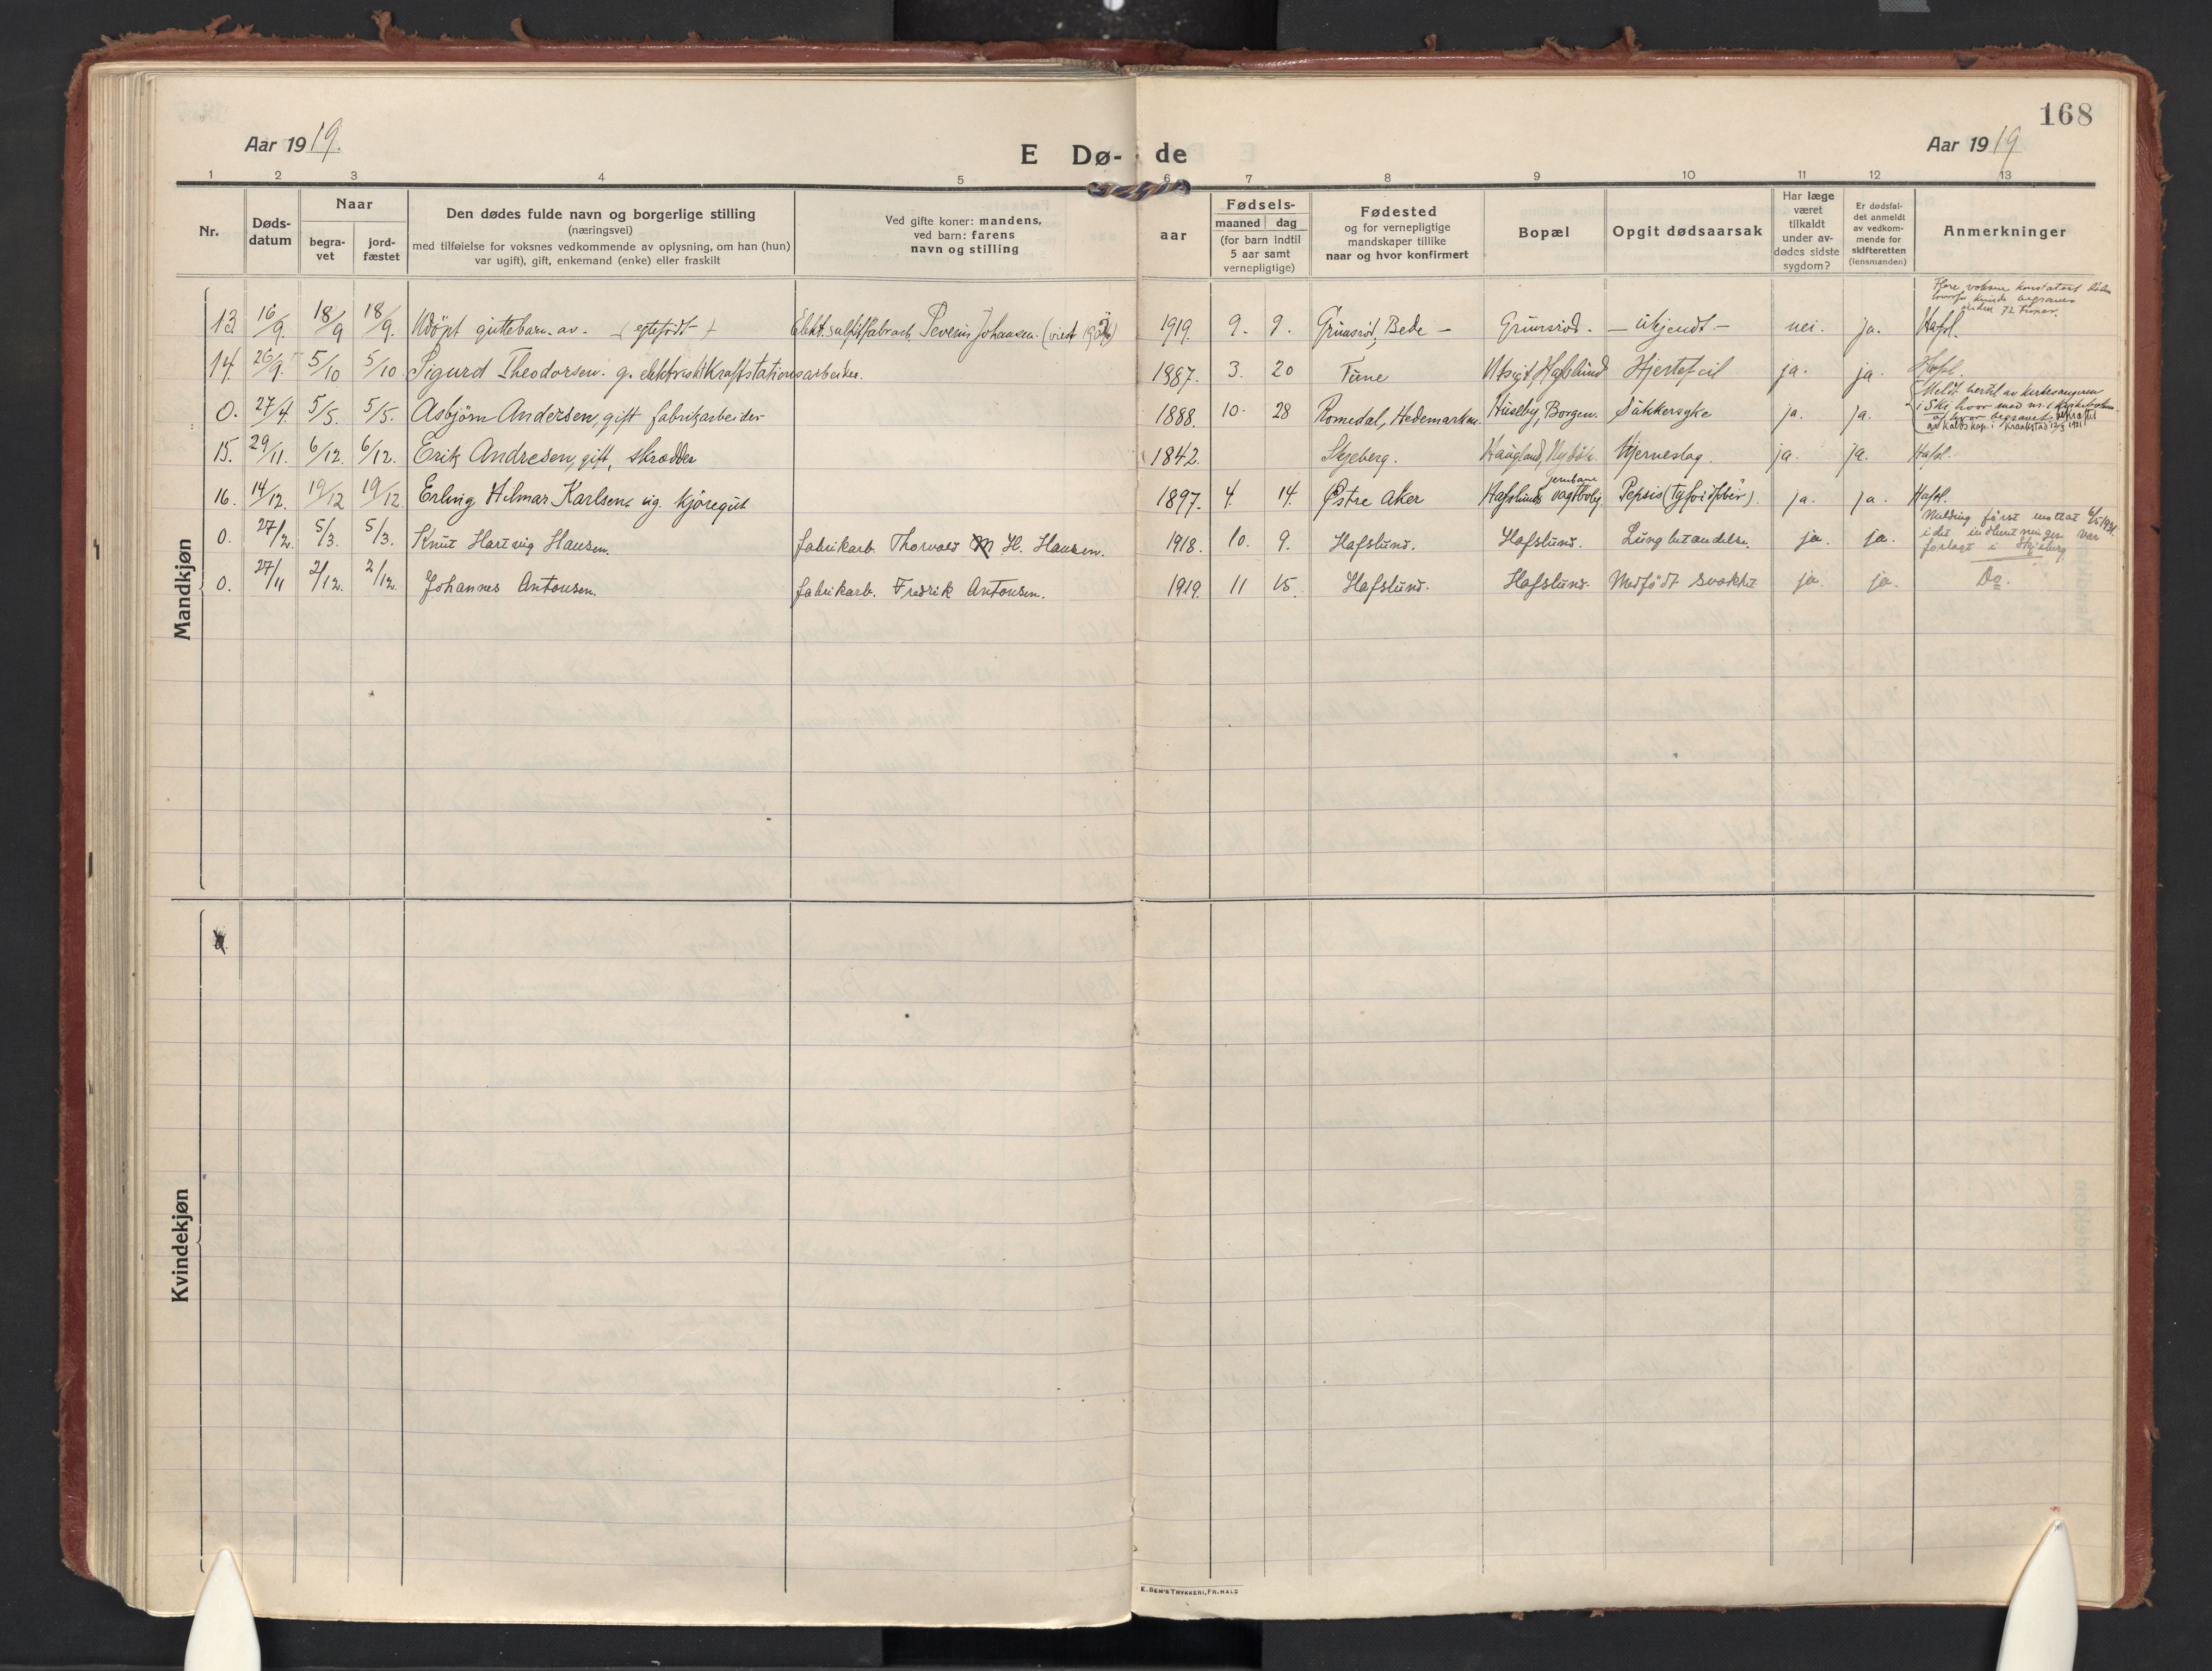 168
Aar 1919.
E Dø- de
Aar 1919
1 2 3 4 5 6 7 8 9 10 11 12 13
Nr.
Døds-
datum
Naar
begra-
vet
jord-
fæstet
Den dødes fulde navn og borgerlige stilling
(næringsvei)
med tilføielse for voksnes vedkommende av oplysning, om han (hun)
var ugift), gift, enkemand (enke) eller fraskilt
Ved gifte koner: mandens,
ved barn: farens
navn og stilling
aar
Fødsels-
maaned dag
(for barn indtil
5 aar samt
vernepligtige)
Fødested
og for vernepligtige
mandskaper tillike
naar og hvor konfirmert
Bopæl
Opgit dødsaarsak
Har læge
været
tilkaldt
under av-
dødes sidste
sygdom?
Er dødsfal-
det anmeldt
av vedkom-
mende for
skifteretten
(lensmanden)
Anmerkninger
Mandkjøn
13 16/9. 18/9 18/9. Udöpt guttebarn av - (egtefödt) Elekt. sulfitfabrarb. Severin Johansen. 1919. 9. 9. Grimsröd, Bede - Grimsröd. - ukjendt - nei. ja. Hafsl.
14. 26/9. 5/10 5/10. Sigurd Theodorsen. g. elektrisk Kraftstationsarbeider. 1887. 3. 20 Tune Utsigt, Hafslund Hjertefeil ja. ja. Hafsl.
0. 27/4. 5/5. 5/5. Asbjörn Andersen, gift fabrikarbeider 1888. 10. 28 Romedal, Hedemarken. Huseby, Borgen. Sukkersyke ja. ja.
i Ski, hvor
15. 29/11. 6/12. 6/12. Erik Andresen, gift, skrædder 1842. Skjeberg. Haugland, Hjerneslag. ja. ja. Hafsl.
16. 14/12. 19/12 19/12. Erling Hilmar Karlsen, ug. kjöregut 1897. 4. 14. Østre Aker Hafslunds jernbane vagtbolig. Pepsis (tyfoidfeber). ja. ja. Hafsl.
0. 27/2. 5/3. 5/3. Knut Hartvig Hansen. fabrikarb. Thorvald H. Hansen. 1918. 10. 9. Hafslund. Hafslund. Lungbetændelse. ja. ja. Melding först mottat 6/5 1921.
i det var
forlagt i Skjeberg
0. 27/11 2/12. 2/12. Johannes Antonsen. fabrikarb. Fredrik Antonsen. 1919. 11 15. Hafslund. Hafslund. Medfödt svakhet ja ja. Do.
Kvindekjøn
E. SEM'S TRYKKERI, FR.HALD